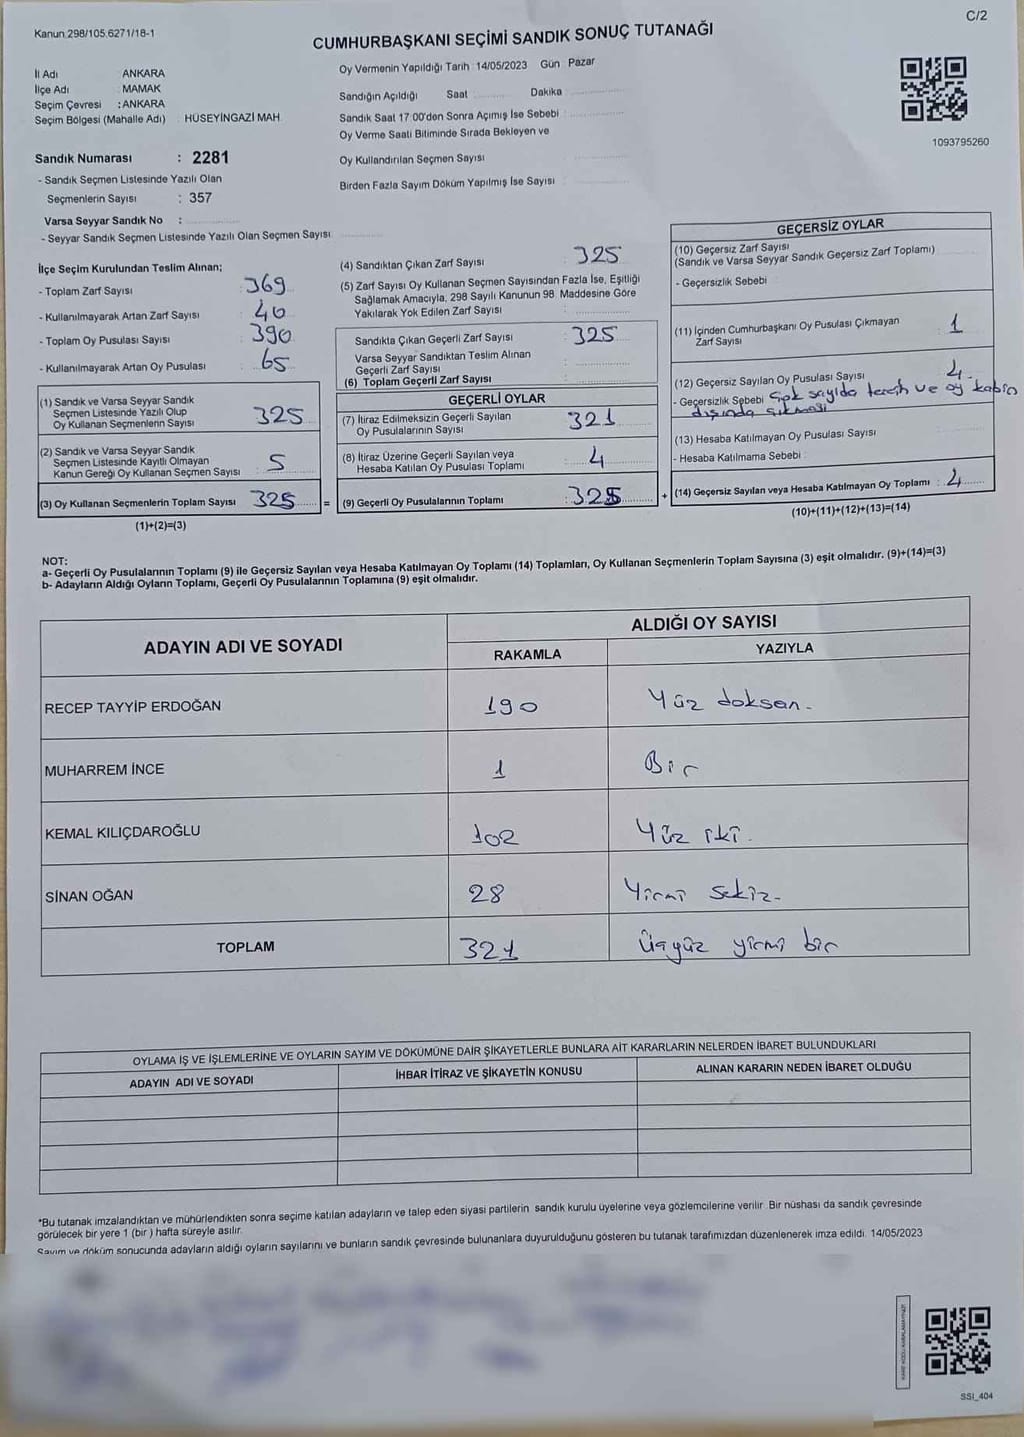 Kanun 298/105.6271/18-1
C/2
CUMHURBAŞKANI SEÇİMİ SANDIK SONUÇ TUTANAĞI
Oy Vermenin Yapıldığı Tarih : 14/05/2023 Gün Pazar
İl Adı : ANKARA
İlçe Adı : MAMAK
Seçim Çevresi : ANKARA
Seçim Bölgesi (Mahalle Adı) : HÜSEYİNGAZİ MAH
Sandığın Açıldığı Saat Dakika
Sandık Saat 17 00'den Sonra Açımış İse Sebebi :
Oy Verme Saati Bitiminde Sırada Bekleyen ve
Oy Kullandırılan Seçmen Sayısı
Birden Fazla Sayım Döküm Yapılmış İse Sayısı :
1093795260
Sandık Numarası : 2281
- Sandık Seçmen Listesinde Yazılı Olan
Seçmenlerin Sayısı : 357
Varsa Seyyar Sandık No :
- Seyyar Sandık Seçmen Listesinde Yazılı Olan Seçmen Sayısı
İlçe Seçim Kurulundan Teslim Alınan;
- Toplam Zarf Sayısı : 369
- Kullanılmayarak Artan Zarf Sayısı : 40
- Toplam Oy Pusulası Sayısı : 390
- Kullanılmayarak Artan Oy Pusulası : 65
(1) Sandık ve Varsa Seyyar Sandık
Seçmen Listesinde Yazılı Olup
Oy Kullanan Seçmenlerin Sayısı : 325
(2) Sandık ve Varsa Seyyar Sandık
Seçmen Listesinde Kayıtlı Olmayan
Kanun Gereği Oy Kullanan Seçmen Sayısı : 5
(3) Oy Kullanan Seçmenlerin Toplam Sayısı : 325 =
(1)+(2)=(3)
(4) Sandıktan Çıkan Zarf Sayısı : 325
(5) Zarf Sayısı Oy Kullanan Seçmen Sayısından Fazla İse, Eşitliği
Sağlamak Amacıyla, 298 Sayılı Kanunun 98. Maddesine Göre
Yakılarak Yok Edilen Zarf Sayısı :
Sandıkta Çıkan Geçerli Zarf Sayısı : 325
Varsa Seyyar Sandıktan Teslim Alınan
Geçerli Zarf Sayısı :
(6) Toplam Geçerli Zarf Sayısı :
GEÇERLİ OYLAR
(7) İtiraz Edilmeksizin Geçerli Sayılan
Oy Pusulalarının Sayısı : 321
(8) İtiraz Üzerine Geçerli Sayılan veya
Hesaba Katılan Oy Pusulası Toplamı : 4
(9) Geçerli Oy Pusulalarının Toplamı : 325 +
GEÇERSİZ OYLAR
(10) Geçersiz Zarf Sayısı
(Sandık ve Varsa Seyyar Sandık Geçersiz Zarf Toplamı)
- Geçersizlik Sebebi :
(11) İçinden Cumhurbaşkanı Oy Pusulası Çıkmayan
Zarf Sayısı : 1
(12) Geçersiz Sayılan Oy Pusulası Sayısı : 4
- Geçersizlik Sebebi Çok sayıda tercih ve oy kabin
dışında
(13) Hesaba Katılmayan Oy Pusulası Sayısı :
- Hesaba Katılmama Sebebi :
(14) Geçersiz Sayılan veya Hesaba Katılmayan Oy Toplamı : 4
(10)+(11)+(12)+(13)=(14)
NOT:
a- Geçerli Oy Pusulalarının Toplamı (9) ile Geçersiz Sayılan veya Hesaba Katılmayan Oy Toplamı (14) Toplamları, Oy Kullanan Seçmenlerin Toplam Sayısına (3) eşit olmalıdır. (9)+(14)=(3)
b- Adayların Aldığı Oyların Toplamı, Geçerli Oy Pusulalarının Toplamına (9) eşit olmalıdır.
ADAYIN ADI VE SOYADI
ALDIĞI OY SAYISI
RAKAMLA YAZIYLA
RECEP TAYYİP ERDOĞAN 190 Yüz doksan.
MUHARREM İNCE 1 Bir
KEMAL KILIÇDAROĞLU 102 Yüz iki.
SİNAN OĞAN 28 Yirmi sekiz.
TOPLAM 321 Üçyüz yirmi bir
OYLAMA İŞ VE İŞLEMLERİNE VE OYLARIN SAYIM VE DÖKÜMÜNE DAİR ŞİKAYETLERLE BUNLARA AİT KARARLARIN NELERDEN İBARET BULUNDUKLARI
ADAYIN ADI VE SOYADI İHBAR İTİRAZ VE ŞİKAYETİN KONUSU ALINAN KARARIN NEDEN İBARET OLDUĞU
*Bu tutanak imzalandıktan ve mühürlendikten sonra seçime katılan adayların ve talep eden siyasi partilerin sandık kurulu üyelerine veya gözlemcilerine verilir. Bir nüshası da sandık çevresinde
görülecek bir yere 1 (bir ) hafta süreyle asılır.
Sayım ve döküm sonucunda adayların aldığı oyların sayılarını ve bunların sandık çevresinde bulunanlara duyurulduğunu gösteren bu tutanak tarafımızdan düzenlenerek imza edildi. 14/05/2023
SSI_404